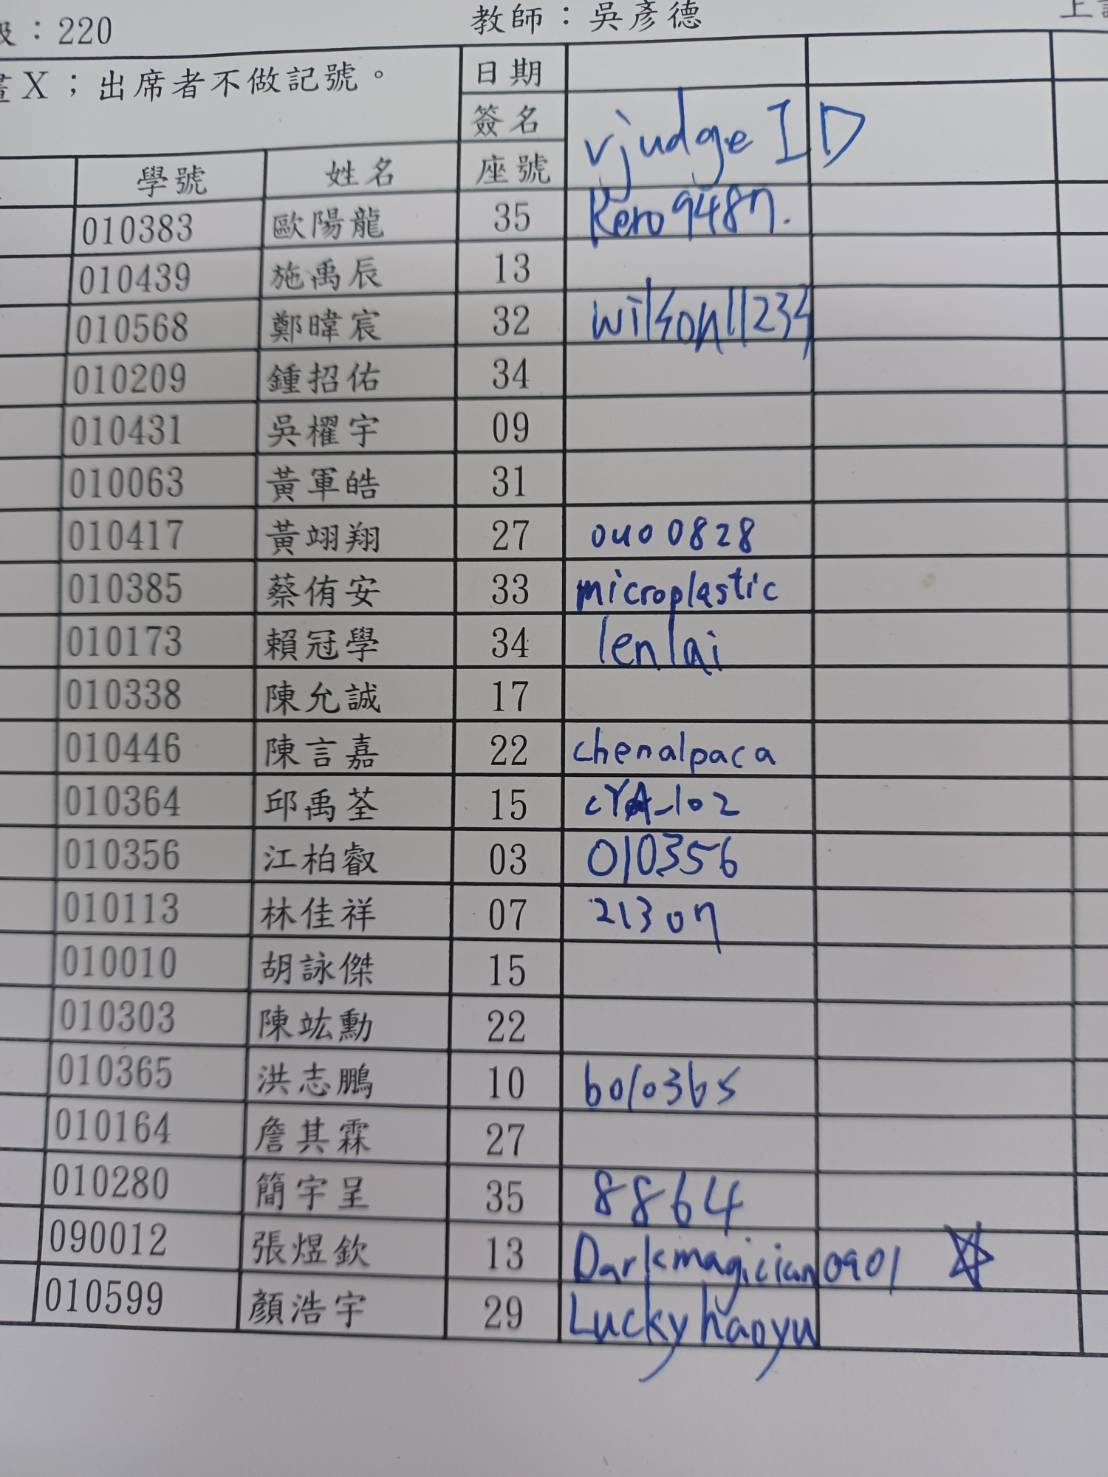 ：220 教師：吳彥德 上
X；出席者不做記號。 日期
簽名 vjudge ID
學號 姓名 座號
010383 歐陽龍 35 Kero9487.
010439 施禹辰 13
010568 鄭暐宸 32 wilson11234
010209 鍾招佑 34
010431 吳櫂宇 09
010063 黃軍皓 31
010417 黃翊翔 27 ouo0828
010385 蔡侑安 33 microplastic
010173 賴冠學 34 lenlai
010338 陳允誠 17
010446 陳言嘉 22 chenalpaca
010364 邱禹荃 15 cYA_102
010356 江柏叡 03 010356
010113 林佳祥 07 213on
010010 胡詠傑 15
010303 陳竑勳 22
010365 洪志鵬 10 b010365
010164 詹其霖 27
010280 簡宇呈 35 8864
090012 張煜欽 13 Darkmagician0901
010599 顏浩宇 29 Luckyhaoyu